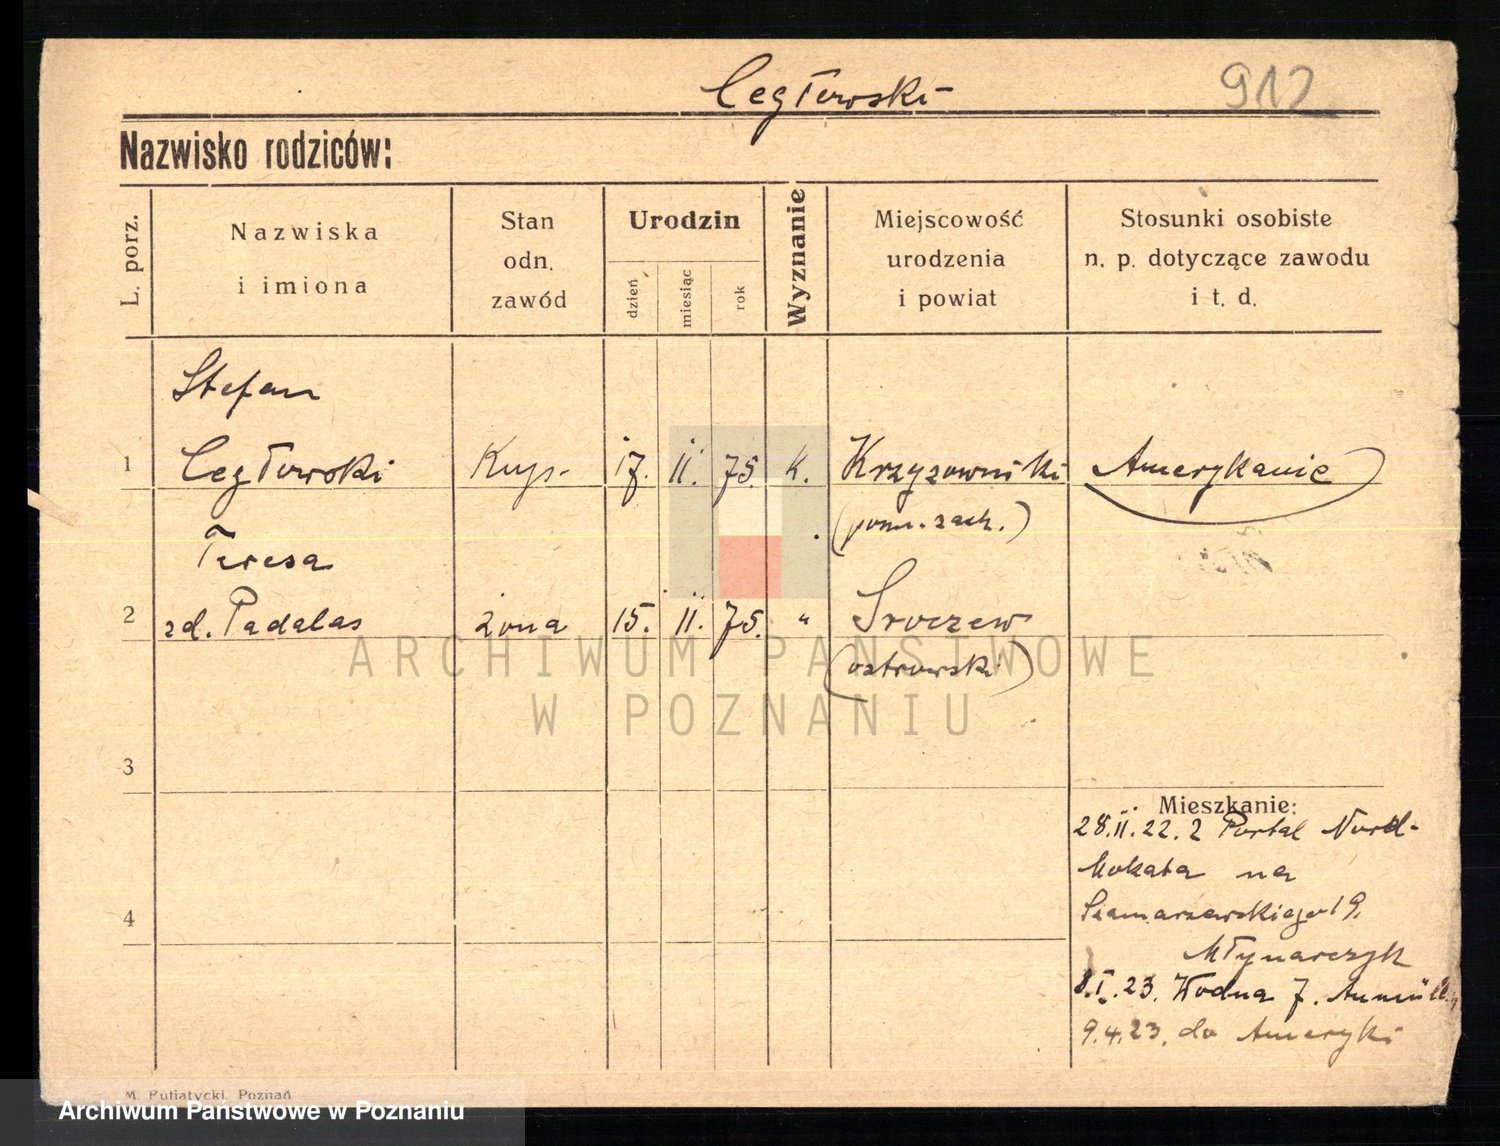 Cegłowski
912
Nazwisko rodziców:
L. porz.
Nazwiska
i imiona
Stan
odn.
zawód
Urodzin
dzień
miesiąc
rok
Wyznanie
Miejscowość
urodzenia
i powiat
Stosunki osobiste
n. p. dotyczące zawodu
i t. d.
Stefan
1 Cegłowski Kup. 17. II. 75. k. Krzyżowniki Amerykanie
(pozn. zach.)
Teresa
2 zd. Padalas żona 15. II. 75. " Sroczew
(ostrowski)
3
Mieszkanie:
28.II.22. z Portal Nord-
Mokata na
4 Szamarzewskiego 19.
Młynarczyk
8.I.23. Wodna 7.
9.4.23. do Ameryki
ARCHIWUM PAŃSTWOWE
W POZNANIU
M. Putiatycki, Poznań
Archiwum Państwowe w Poznaniu